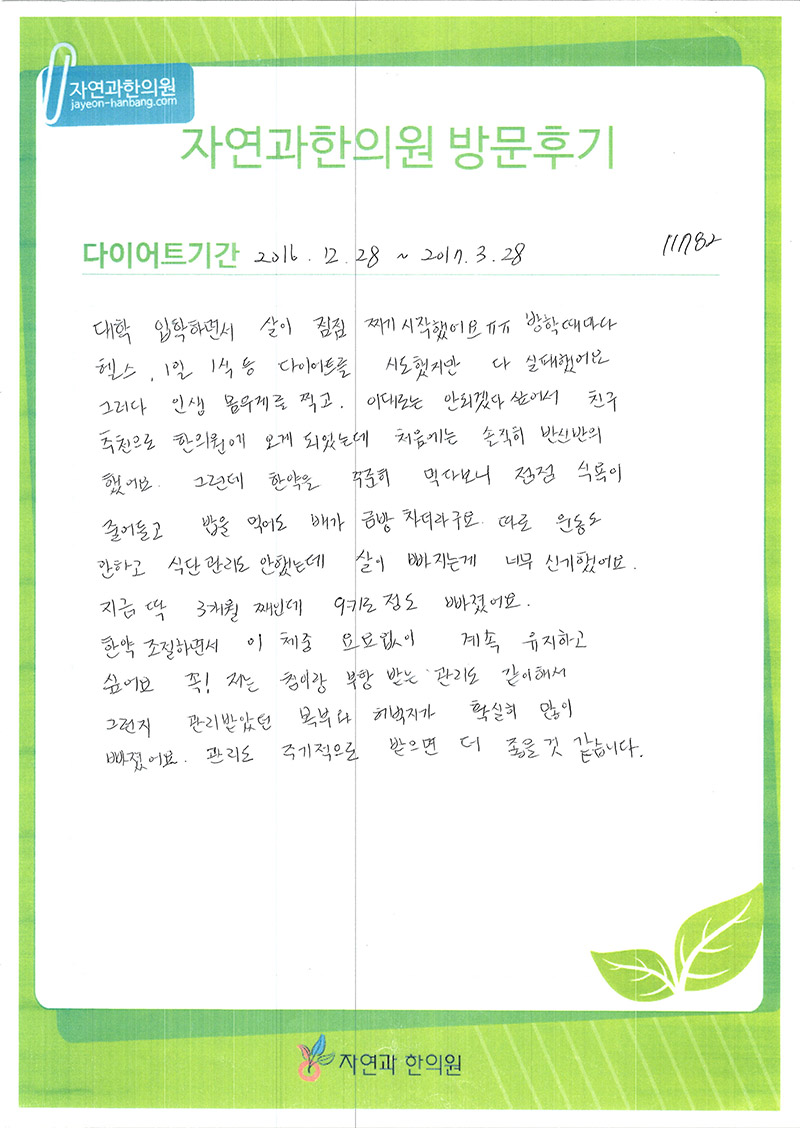 자연과한의원
jayeon-hanbang.com
자연과한의원 방문후기
다이어트기간 2016. 12. 28 ~ 2017. 3. 28 11782
대학 입학하면서 살이 점점 찌기 시작했어요 ㅠㅠ 방학때마다
헬스, 1일 1식 등 다이어트를 시도했지만 다 실패했어요
그러다 인생 몸무게를 찍고. 이대로는 안되겠다 싶어서 친구
추천으로 한의원에 오게 되었는데 처음에는 솔직히 반신반의
했어요. 그런데 한약을 꾸준히 먹다보니 점점 식욕이
줄어들고 밥을 먹어도 배가 금방 차더라구요. 따로 운동도
안하고 식단관리도 안했는데 살이 빠지는게 너무 신기했어요.
지금 딱 3개월 째인데 9키로 정도 빠졌어요.
한약 조절하면서 이 체중 요요없이 계속 유지하고
싶어요 꼭! 저는 침이랑 부항 받는 관리도 같이해서
그런지 관리받았던 복부와 허벅지가 확실히 많이
빠졌어요. 관리도 주기적으로 받으면 더 좋을것 같습니다.
자연과 한의원